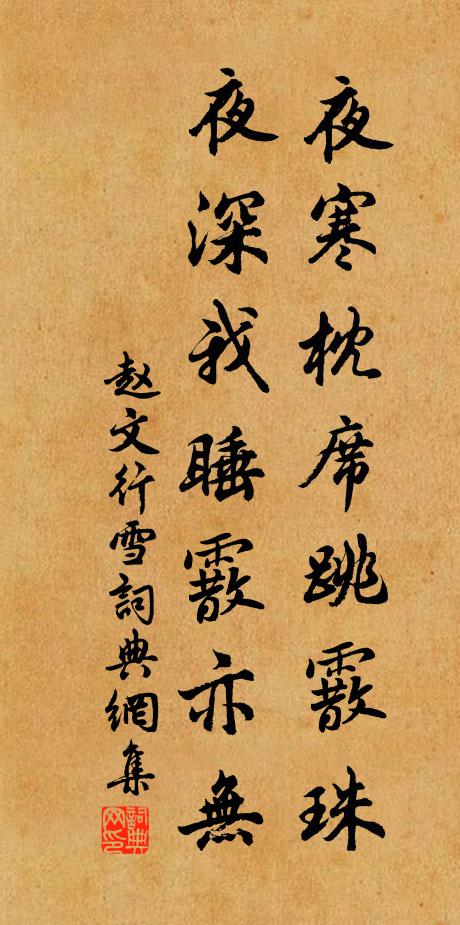 夜寒枕席跳霰珠
夜深我睡霰亦無
赵文行雪詞典網集
詞典網印